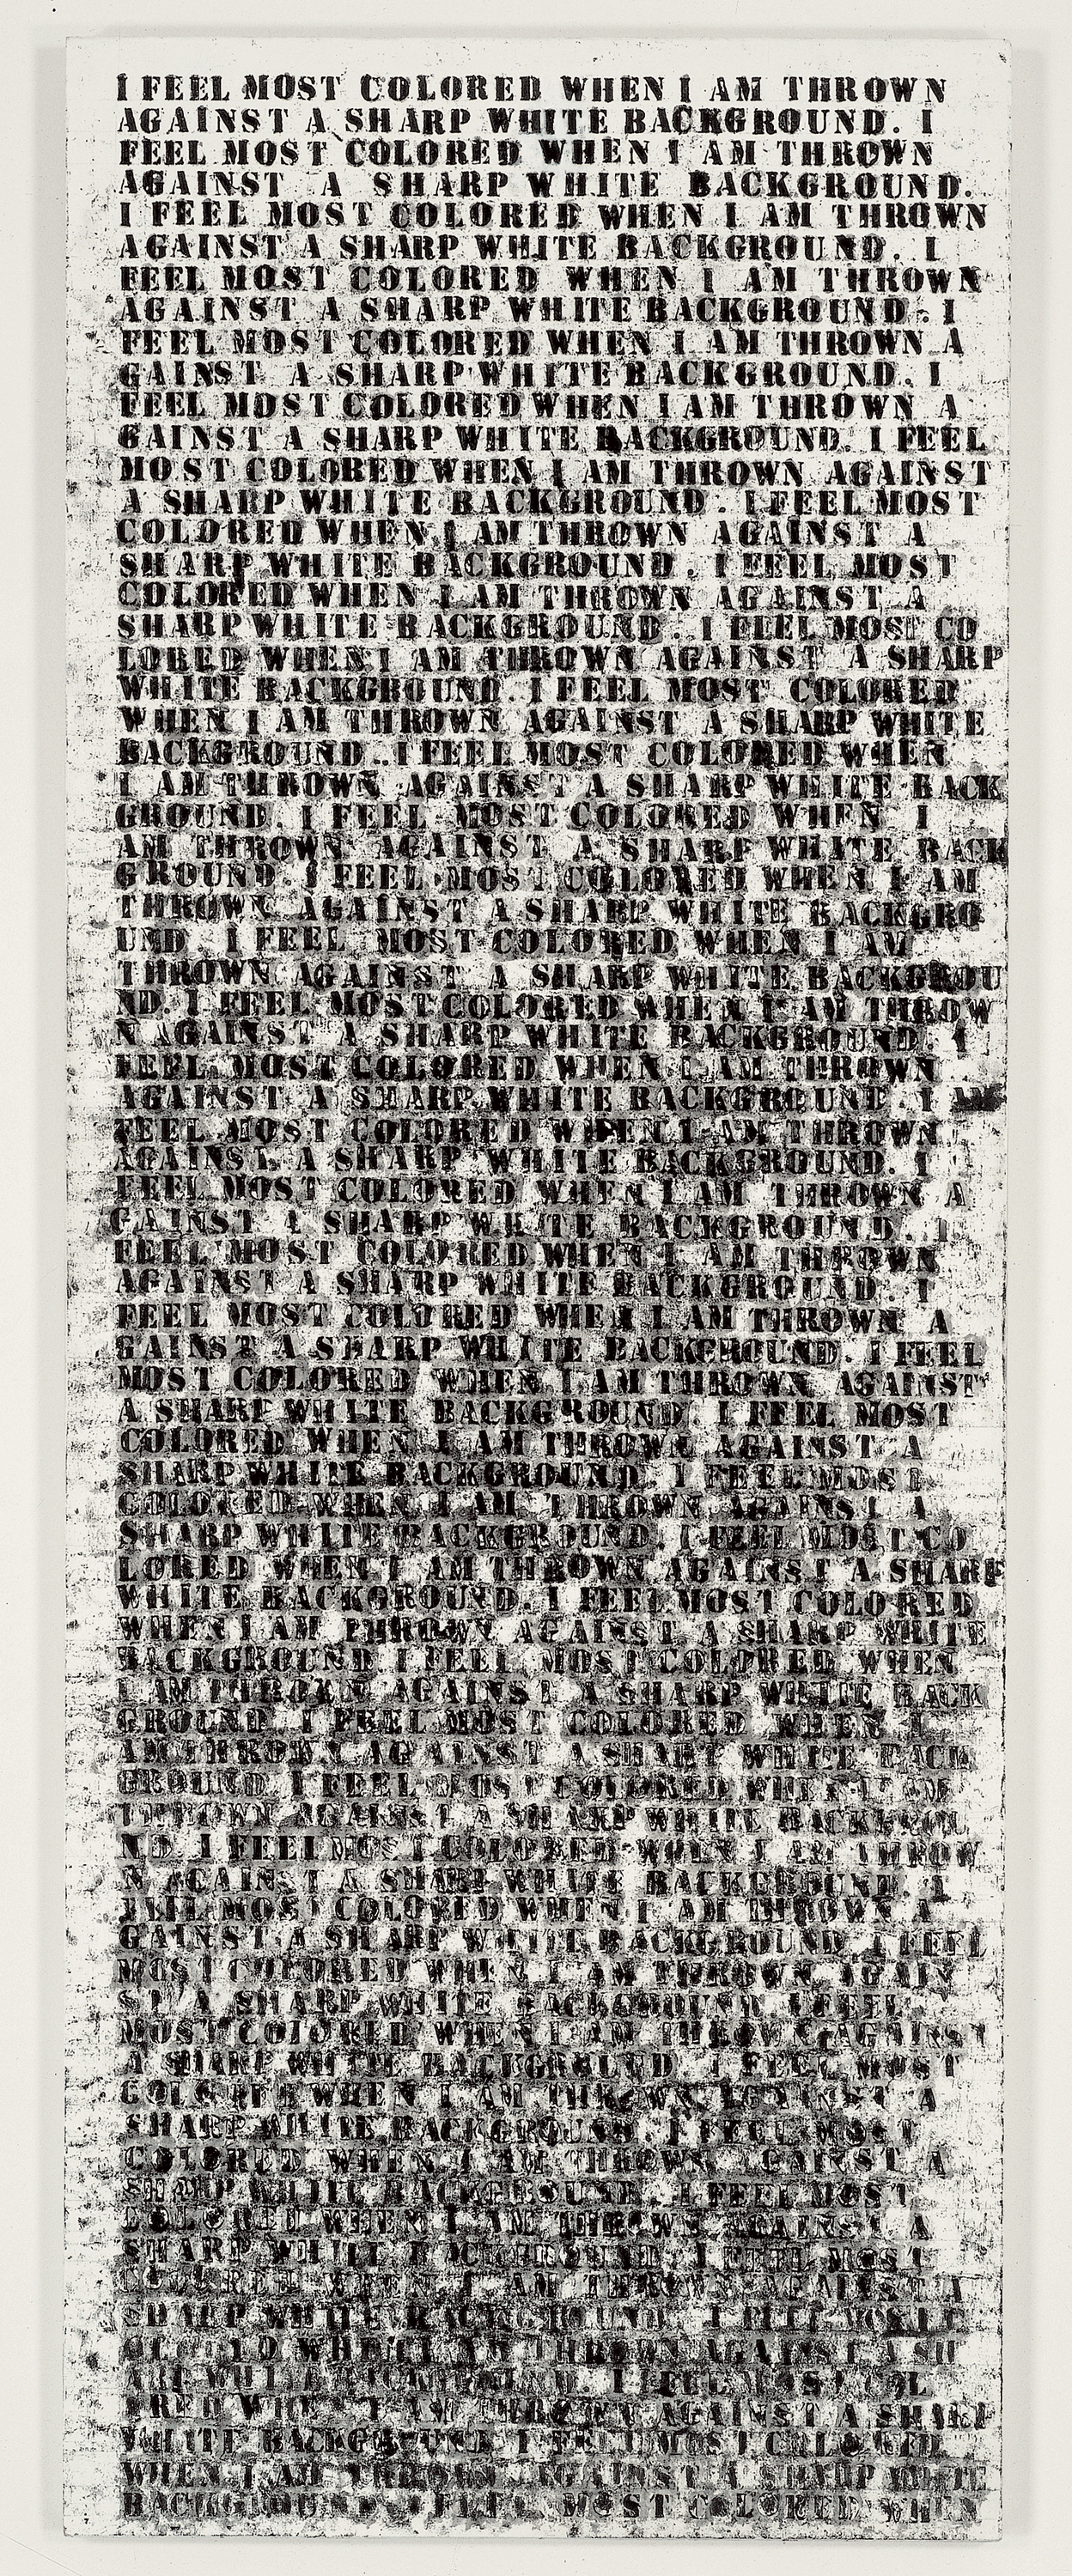 I FEEL MOST COLORED WHEN I AM THROWN
AGAINST A SHARP WHITE BACKGROUND. I
FEEL MOST COLORED WHEN I AM THROWN
AGAINST A SHARP WHITE BACKGROUND.
I FEEL MOST COLORED WHEN I AM THROWN
AGAINST A SHARP WHITE BACKGROUND. I
FEEL MOST COLORED WHEN I AM THROWN
AGAINST A SHARP WHITE BACKGROUND. I
FEEL MOST COLORED WHEN I AM THROWN A
GAINST A SHARP WHITE BACKGROUND. I
FEEL MOST COLORED WHEN I AM THROWN A
GAINST A SHARP WHITE BACKGROUND. I FEEL
MOST COLORED WHEN I AM THROWN AGAINST
A SHARP WHITE BACKGROUND. I FEEL MOST
COLORED WHEN I AM THROWN AGAINST A
SHARP WHITE BACKGROUND. I FEEL MOST
COLORED WHEN I AM THROWN AGAINST A
SHARP WHITE BACKGROUND. I FEEL MOST CO
LORED WHEN I AM THROWN AGAINST A SHARP
WHITE BACKGROUND. I FEEL MOST COLORED
WHEN I AM THROWN AGAINST A SHARP WHITE
BACKGROUND. I FEEL MOST COLORED WHEN
I AM THROWN AGAINST A SHARP WHITE BACK
GROUND. I FEEL MOST COLORED WHEN I
AM THROWN AGAINST A SHARP WHITE BACK
GROUND. I FEEL MOST COLORED WHEN I AM
THROWN AGAINST A SHARP WHITE BACKGRO
UND I FEEL MOST COLORED WHEN I AM
THROWN AGAINST A SHARP WHITE BACKGROU
ND. I FEEL MOST COLORED WHEN I AM THROW
N AGAINST A SHARP WHITE BACKGROUND. I
FEEL MOST COLORED WHEN I AM THROWN
AGAINST A SHARP WHITE BACKGROUND. I
FEEL MOST COLORED WHEN I AM THROWN
AGAINST A SHARP WHITE BACKGROUND. I
FEEL MOST COLORED WHEN I AM THROWN A
GAINST A SHARP WHITE BACKGROUND. I
FEEL MOST COLORED WHEN I AM THROWN
AGAINST A SHARP WHITE BACKGROUND. I
FEEL MOST COLORED WHEN I AM THROWN A
GAINST A SHARP WHITE BACKGROUND. I FEEL
MOST COLORED WHEN I AM THROWN AGAINST
A SHARP WHITE BACKGROUND. I FEEL MOST
COLORED WHEN I AM THROWN AGAINST A
SHARP WHITE BACKGROUND. I FEEL MOST
COLORED WHEN I AM THROWN AGAINST A
SHARP WHITE BACKGROUND. I FEEL MOST CO
LORED WHEN I AM THROWN AGAINST A SHARP
WHITE BACKGROUND. I FEEL MOST COLORED
WHEN I AM THROWN AGAINST A SHARP WHITE
BACKGROUND I FEEL MOST COLORED WHEN
I AM THROWN AGAINST A SHARP WHITE BACK
GROUND. I FEEL MOST COLORED WHEN I
AM THROWN AGAINST A SHARP WHITE BACK
GROUND I FEEL MOST COLORED WHEN I AM
THROWN AGAINST A SHARP WHITE
ND. I FEEL MOST COLORED WHEN I AM THROW
N AGAINST A SHARP WHITE BACKGROUND. I
FEEL MOST COLORED WHEN I AM THROWN A
GAINST A SHARP WHITE BACKGROUND. I FEEL
MOST COLORED WHEN I AM THROWN AGAIN
ST A SHARP WHITE BACKGROUND. I FEEL
MOST COLORED WHEN I AM THROWN AGAINST
A SHARP WHITE BACKGROUND I FEEL MOST
COLORED WHEN I AM THROWN AGAINST A
SHARP WHITE BACKGROUND I FEEL MOST
COLORED WHEN I AM THROWN AGAINST A
SHARP WHITE BACKGROUND. I FEEL MOST
COLORED WHEN I AM THROWN AGAINST A
SHARP WHITE BACKGROUND. I FEEL MOST
COLORED WHEN I AM THROWN AGAINST A
SHARP WHITE BACKGROUND. I FEEL
WHEN I AM THROWN AGAINST A SH
ARP WHITE I FEEL MOST
WHEN I AM THROWN AGAINST A SHARP
WHITE BACKGROUND I FEEL MOST COLORED
WHEN I AM THROWN AGAINST A SHARP WHITE
BACKGROUND I FEEL MOST COLORED WHEN